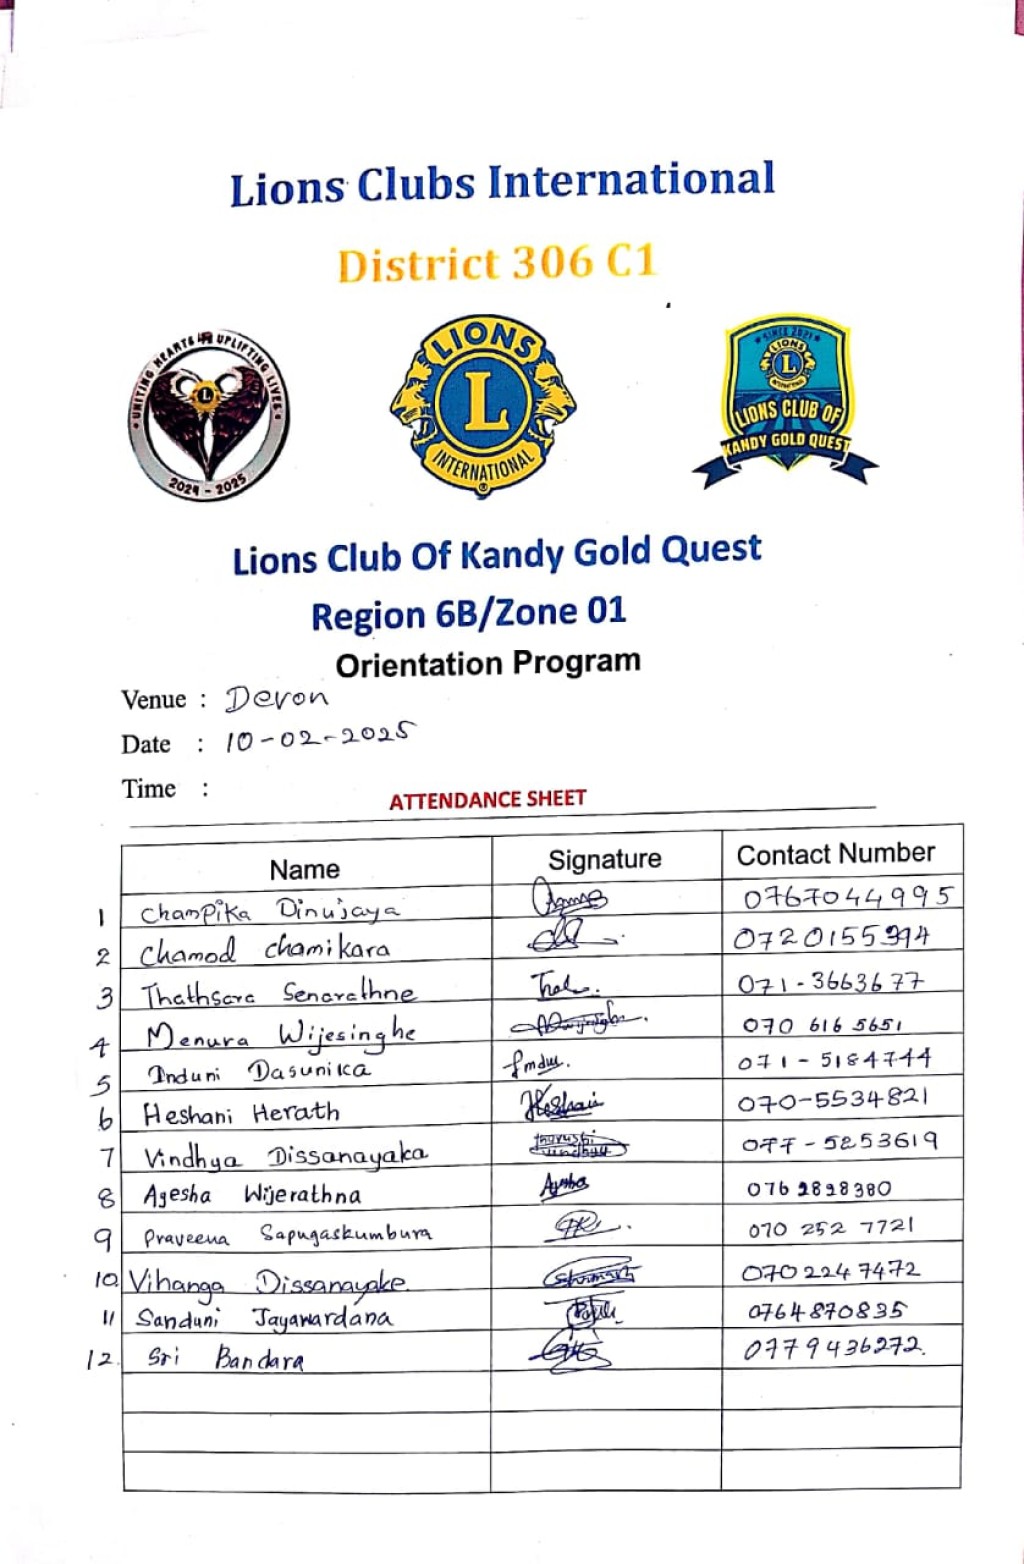 Lions Clubs International
District 306 C1
UNITING HEARTS UPLIFTING LIVES
2024 - 2025
LIONS
L
INTERNATIONAL
®
SINCE 2021
LIONS
L
INTERNATIONAL
LIONS CLUB OF
KANDY GOLD QUEST
Lions Club Of Kandy Gold Quest
Region 6B/Zone 01
Orientation Program
Venue : Devon
Date : 10-02-2025
Time :
ATTENDANCE SHEET
Name Signature Contact Number
1 Champika Dinujaya 0767044995
2 Chamod chamikara 0720155994
3 Thathsara Senarathne 071-3663677
4 Menura Wijesinghe 070 616 5651
5 Induni Dasunika 071-5184744
6 Heshani Herath 070-5534821
7 Vindhya Dissanayaka 077-5253619
8 Agesha Wijerathna 076 2828380
9 Praveena Sapugaskumbura 070 252 7721
10 Vihanga Dissanayake 070 224 7472
11 Sanduni Jayawardana 0764870835
12. Sri Bandara 0779436272.